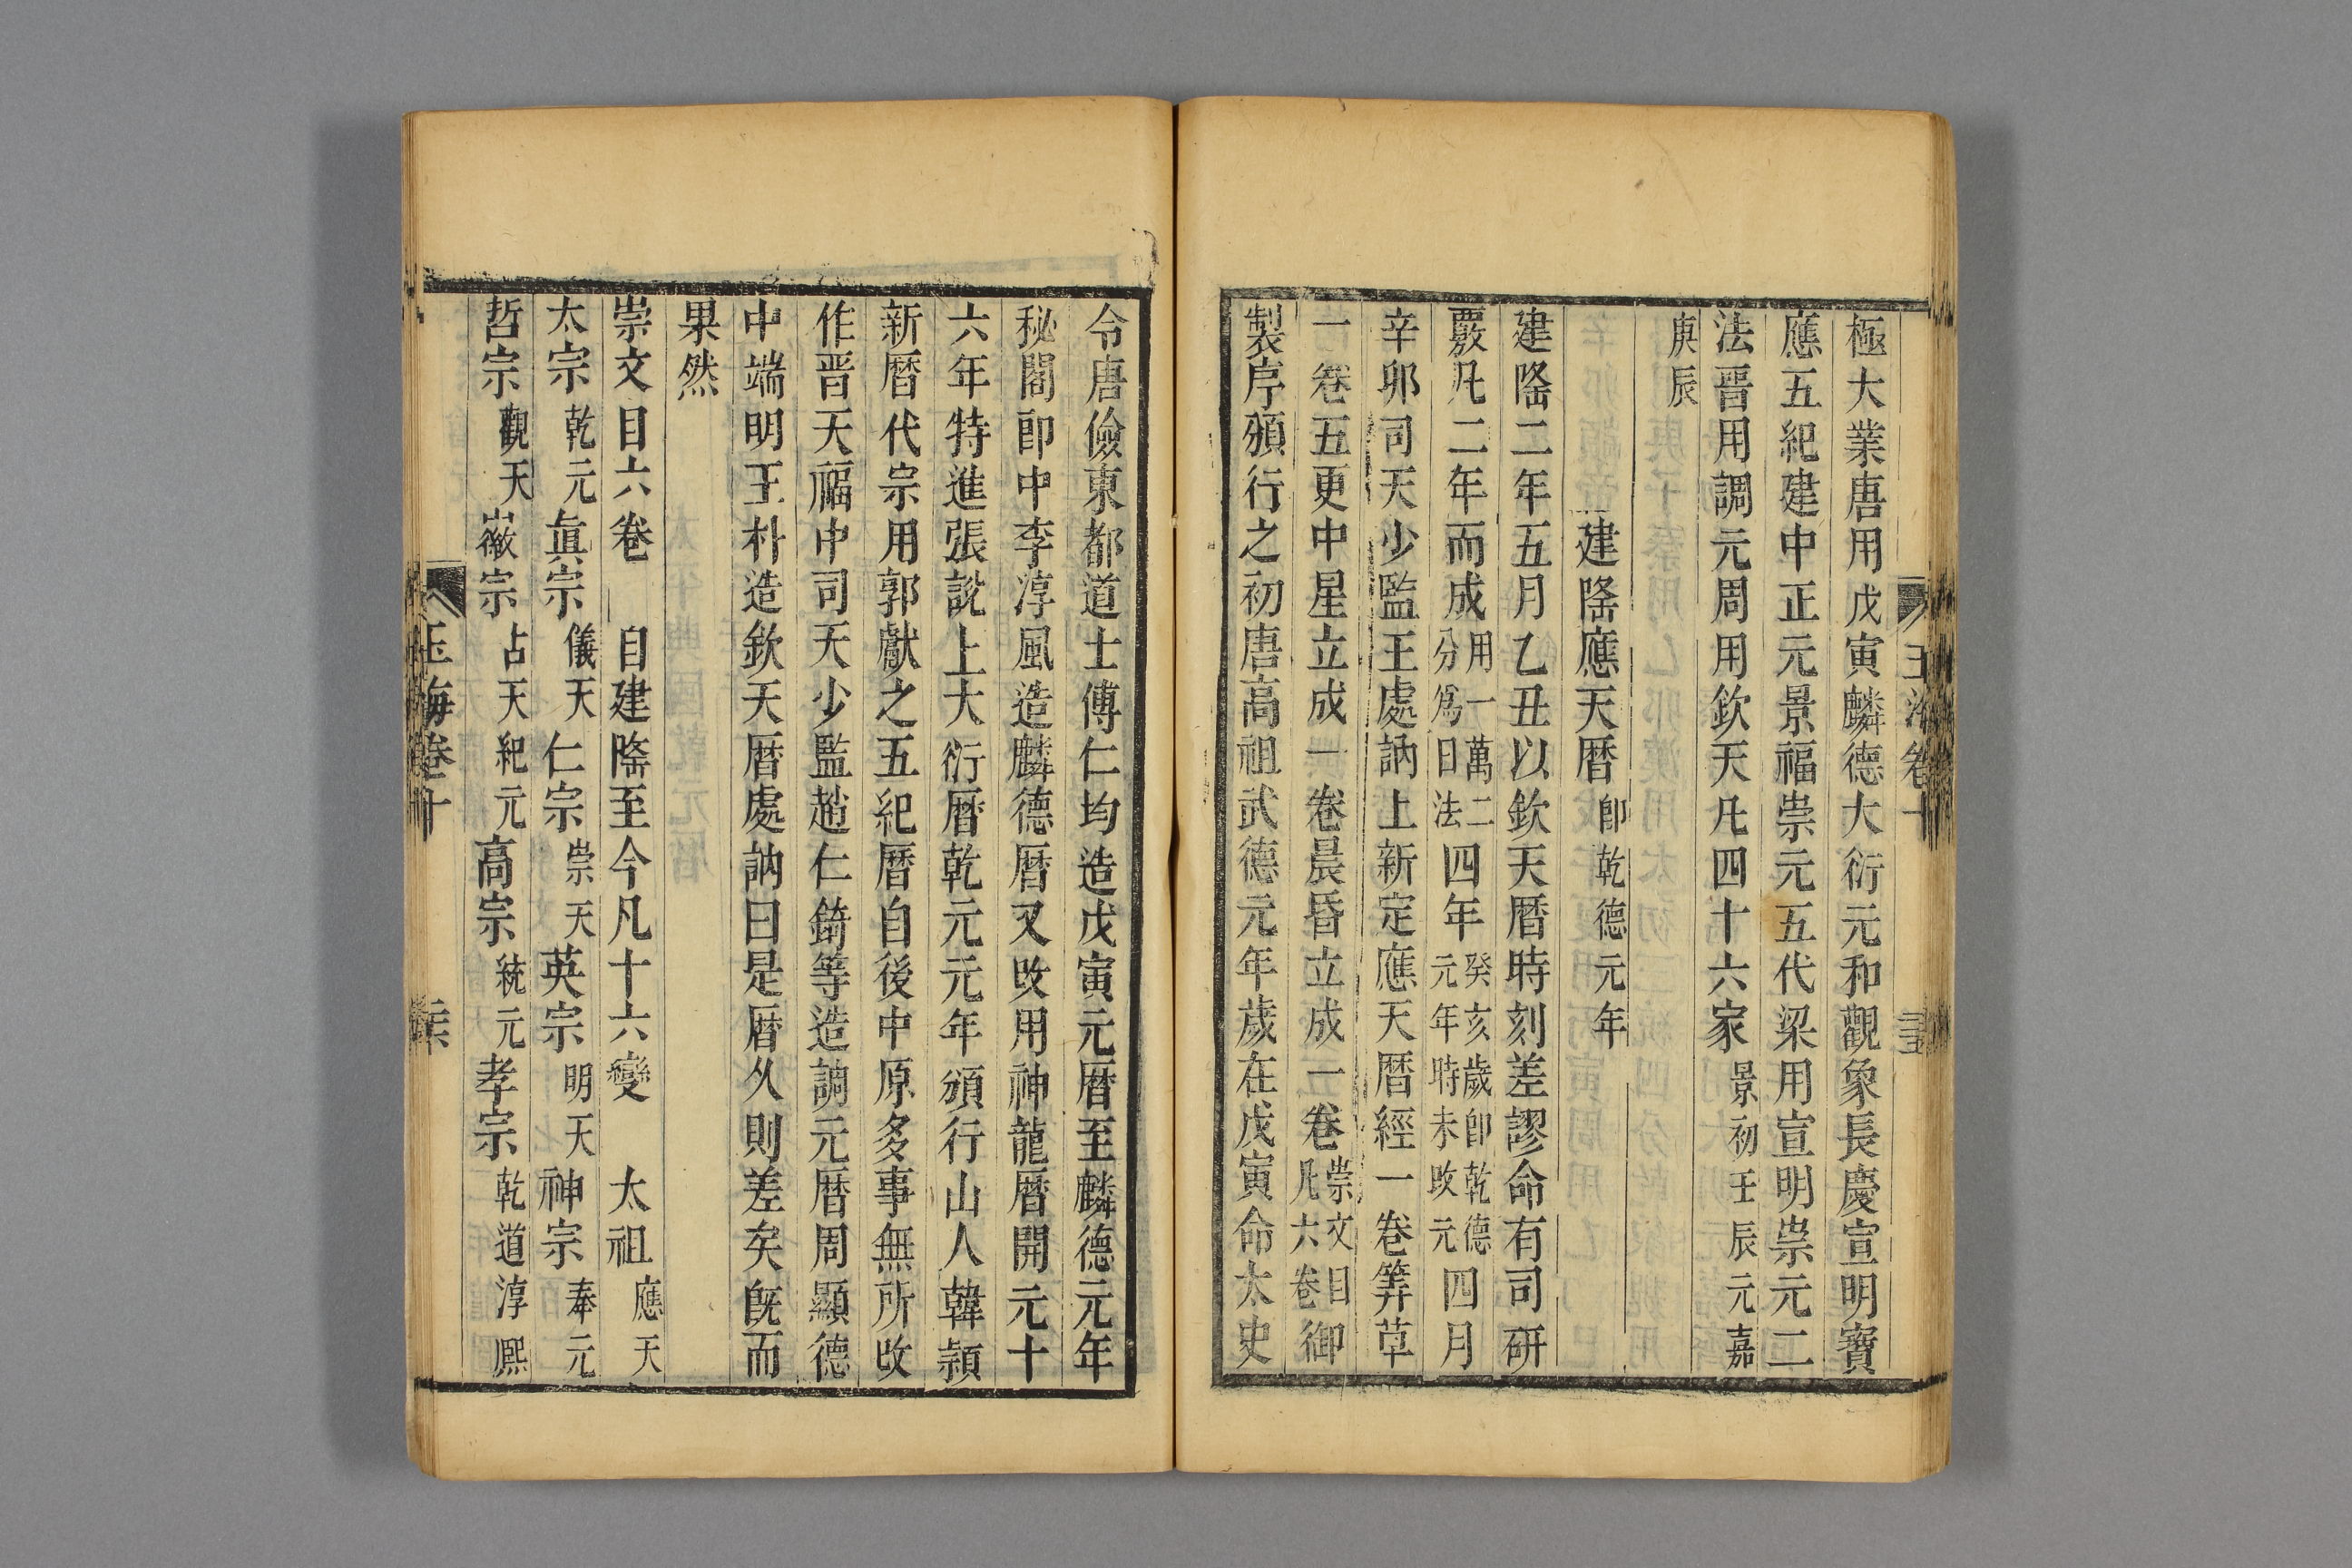 極大業唐用戊寅麟德大衍元和觀象長慶宣明寶
應五紀建中正元景福崇元五代梁用宣明崇元二
法晉用調元周用欽天凡四十六家景初壬辰元嘉
庚辰
建隆應天曆卽乾德元年
建隆二年五月乙丑以欽天曆時刻差謬命有司研
覈凡二年而成用一萬二分爲日法四年癸亥歲卽乾德元年時未改元四月
辛卯司天少監王處訥上新定應天曆經一卷筭草
一卷五更中星立成一卷晨昏立成一卷崇文目凡六卷御
製序頒行之初唐高祖武德元年歲在戊寅命太史
玉海卷十
令唐儉東都道士傅仁均造戊寅元曆至麟德元年
秘閣郎中李淳風造麟德曆又改用神龍曆開元十
六年特進張說上大衍曆乾元元年頒行山人韓頴
新曆代宗用郭獻之五紀曆自後中原多事無所改
作晉天福中司天少監趙仁錡等造調元曆周顯德
中端明王朴造欽天曆處訥曰是曆久則差矣旣而
果然
崇文目六卷 自建隆至今凡十六變 太祖應天
太宗乾元眞宗儀天仁宗崇天英宗明天神宗奉元
哲宗觀天徽宗占天紀元高宗統元孝宗乾道淳熈
玉海卷十